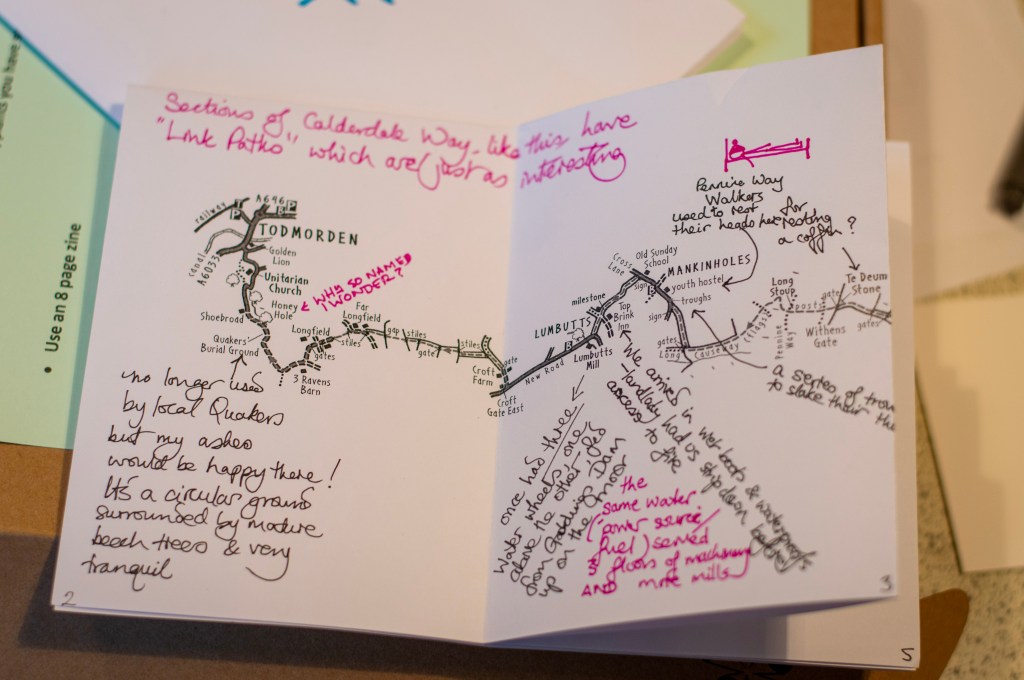 Use an 8 page zine
Sections of Calderdale Way - like this have
"Link Paths" which are just as interesting
railway
A646
P
P
TODMORDEN
canal
A6033
Golden
Lion
Unitarian
Church
Honey
Hole
WHY SO NAMED
I WONDER?
Shoebroad
Quakers'
Burial Ground
Longfield
gates
3 Ravens
Barn
Far
Longfield
stiles
gap
stiles
gate
stiles
gate
Croft
Farm
Croft
Gate East
no longer used
by local Quakers
but my ashes
would be happy there!
It's a circular ground
surrounded by mature
beech trees & very
tranquil
2
Pennine Way
Walkers
used to rest
their heads here
for
resting
a coffin?
Cross
Lane
Old Sunday
School
sign
MANKINHOLES
youth hostel
troughs
sign
milestone
Top
Brink
Inn
LUMBUTTS
Lumbutts
Mill
New Road
gates
Long Causeway
Long
Stoup
posts
Pennine
Way
gate
Te Deum
Stone
Withens
Gate
gates
a series of
to slake their
We arrived in wet boots & waterproofs
- landlady had us strip down before
access to fire
once had three
water wheels one
above the other - fed
from Gaddings Dam
up on the moor
the
same water
(power source/
fuel) served
3 floors of machinery
AND more mills
3
5